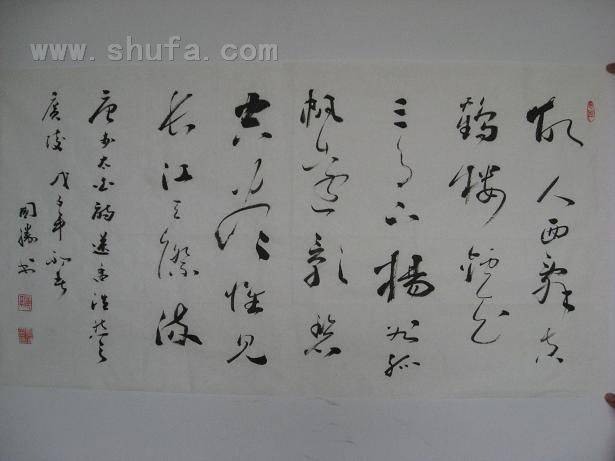 www.shufa.com
故人西辞黄
鹤楼烟花
三月下揚州孤
帆远影碧
空尽惟见
长江天际流
唐李太白诗送孟浩然之
广陵 戊子年初春
国胜书